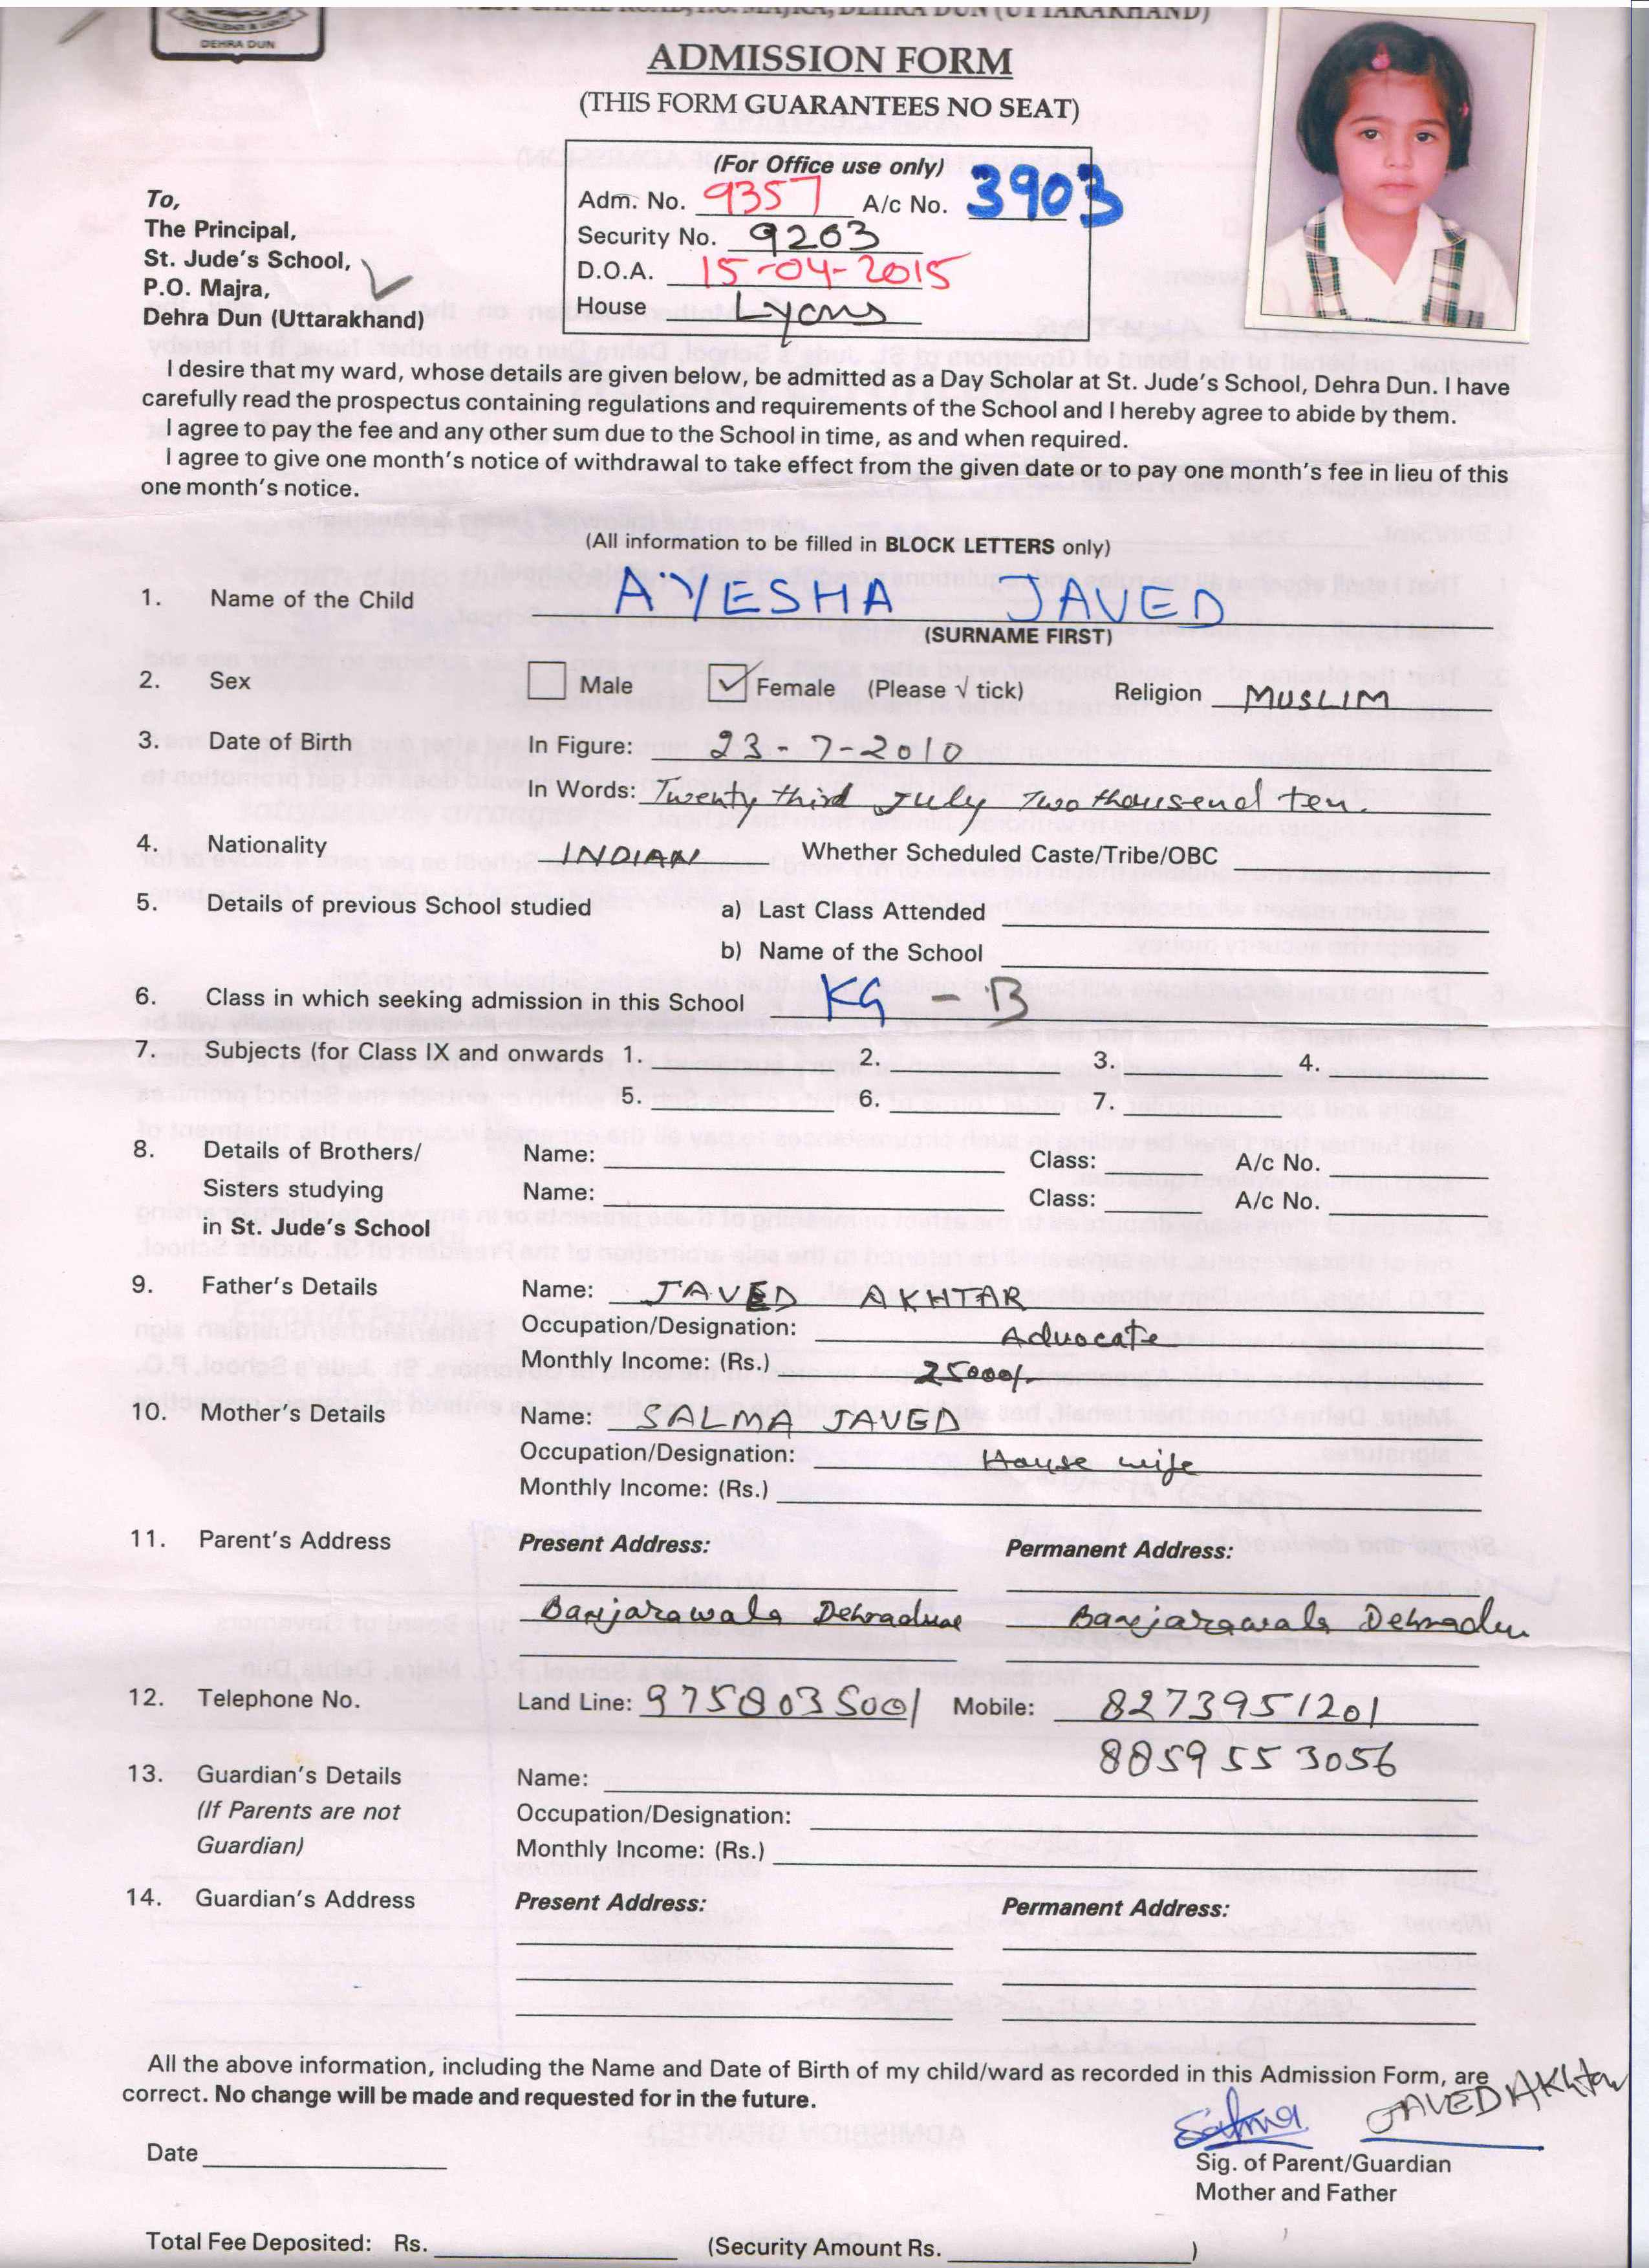 DEHRA DUN
WEST CANAL ROAD, P.O. MAJRA, DEHRA DUN (UTTARAKHAND)
ADMISSION FORM
(THIS FORM GUARANTEES NO SEAT)
(For Office use only)
Adm. No. 9357 A/c No. 3903
Security No. 9263
D.O.A. 15-04-2015
House Lyons
To,
The Principal,
St. Jude's School,
P.O. Majra,
Dehra Dun (Uttarakhand)
I desire that my ward, whose details are given below, be admitted as a Day Scholar at St. Jude's School, Dehra Dun. I have
carefully read the prospectus containing regulations and requirements of the School and I hereby agree to abide by them.
I agree to pay the fee and any other sum due to the School in time, as and when required.
I agree to give one month's notice of withdrawal to take effect from the given date or to pay one month's fee in lieu of this
one month's notice.
(All information to be filled in BLOCK LETTERS only)
1. Name of the Child AYESHA JAVED
(SURNAME FIRST)
2. Sex Male ✓ Female (Please √ tick) Religion MUSLIM
3. Date of Birth In Figure: 23-7-2010
In Words: Twenty third July Two thousend ten.
4. Nationality INDIAN Whether Scheduled Caste/Tribe/OBC
5. Details of previous School studied a) Last Class Attended
b) Name of the School
6. Class in which seeking admission in this School KG - B
7. Subjects (for Class IX and onwards 1. 2. 3. 4.
5. 6. 7.
8. Details of Brothers/ Name: Class: A/c No.
Sisters studying Name: Class: A/c No.
in St. Jude's School
9. Father's Details Name: JAVED AKHTAR
Occupation/Designation: Advocate
Monthly Income: (Rs.) 25000/-
10. Mother's Details Name: SALMA JAVED
Occupation/Designation: House wife
Monthly Income: (Rs.)
11. Parent's Address Present Address: Permanent Address:
Banjarawala Dehradune Banjarawala Dehradun
12. Telephone No. Land Line: 9758035001 Mobile: 8273951201
8859553056
13. Guardian's Details Name:
(If Parents are not Occupation/Designation:
Guardian) Monthly Income: (Rs.)
14. Guardian's Address Present Address: Permanent Address:
All the above information, including the Name and Date of Birth of my child/ward as recorded in this Admission Form, are
correct. No change will be made and requested for in the future.
Salma JAVED AKhtar
Date Sig. of Parent/Guardian
Mother and Father
Total Fee Deposited: Rs. (Security Amount Rs. )